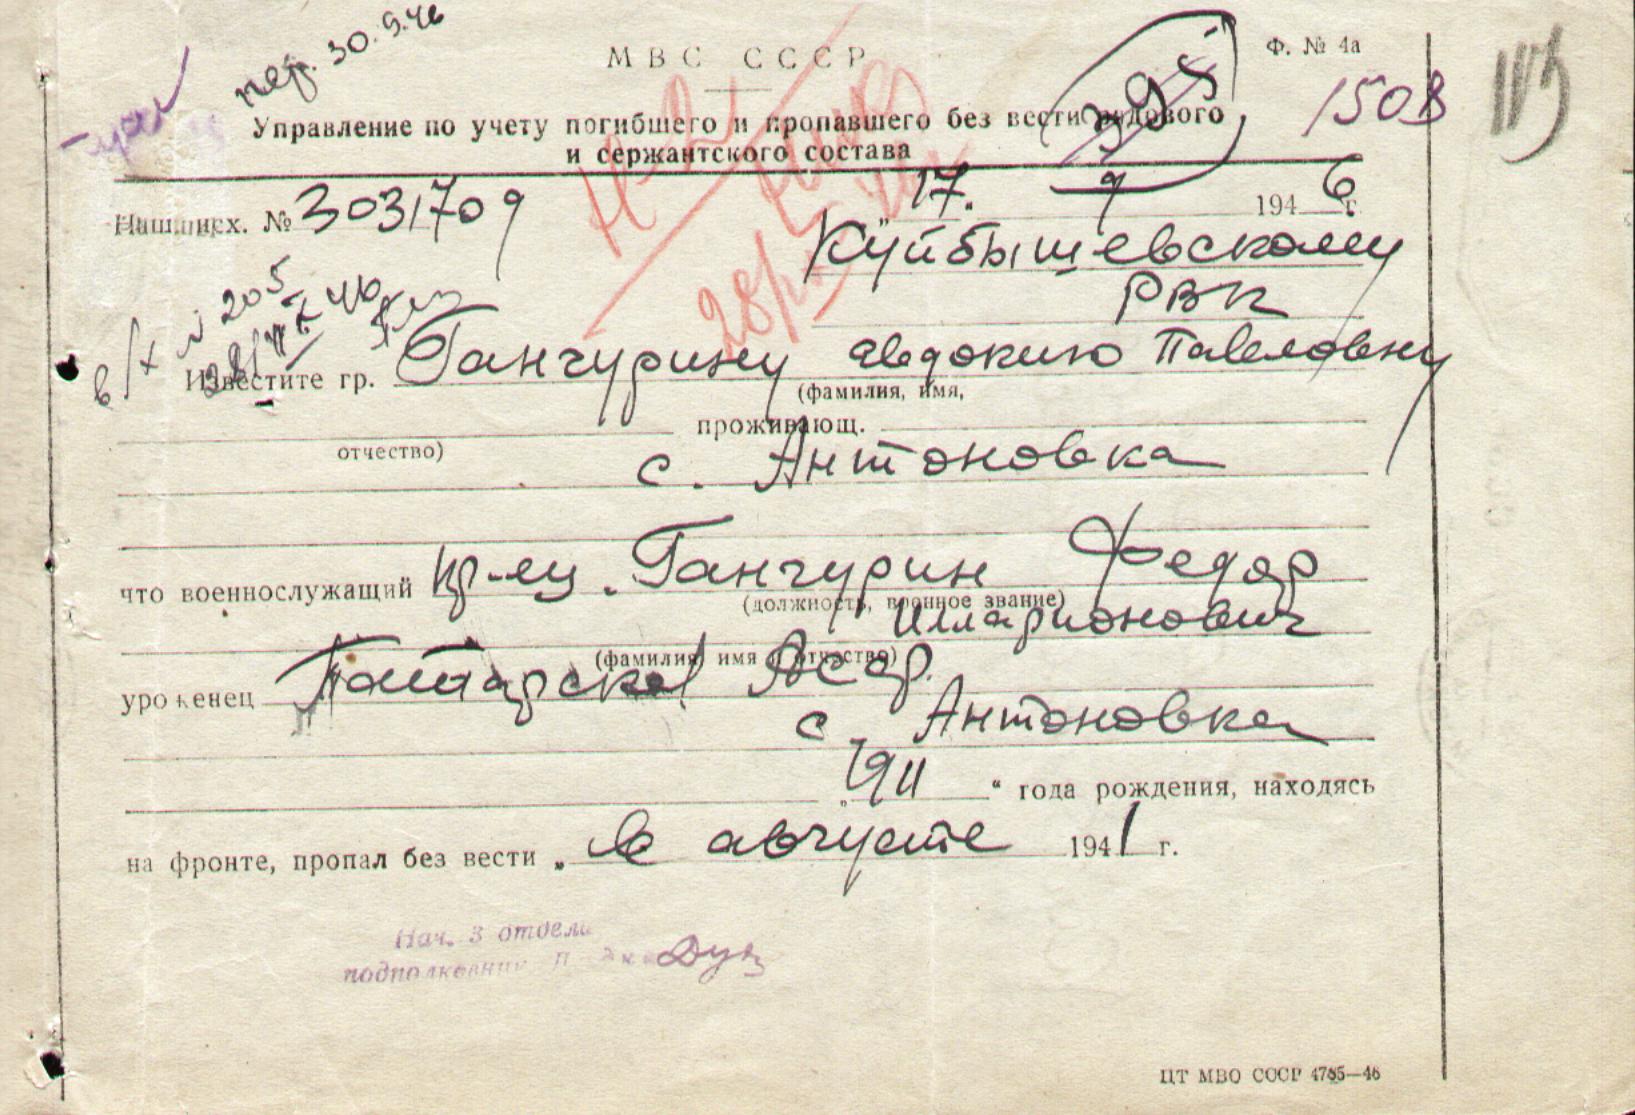 пер. 30.9.46
МВС СССР
Ф. № 4а
150В
Управление по учету погибшего и пропавшего без вести рядового
и сержантского состава
17. 9 1946 г.
Наш исх. № 3031709
Куйбышевскому
РВК
№ 205
Известите гр. Ганчурину Авдокию Павеловну
(фамилия, имя,
проживающ.
отчество)
с. Антоновка
что военнослужащий кр-ец. Ганчурин Федор
(должность, военное звание)
Илларионович
(фамилия, имя и отчество)
уроженец Татарской АССР.
с. Антоновка
„1911“ года рождения, находясь
на фронте, пропал без вести „ в августе 1941 г.
Нач. 3 отдела
подполковник
ЦТ МВО СССР 4785—46